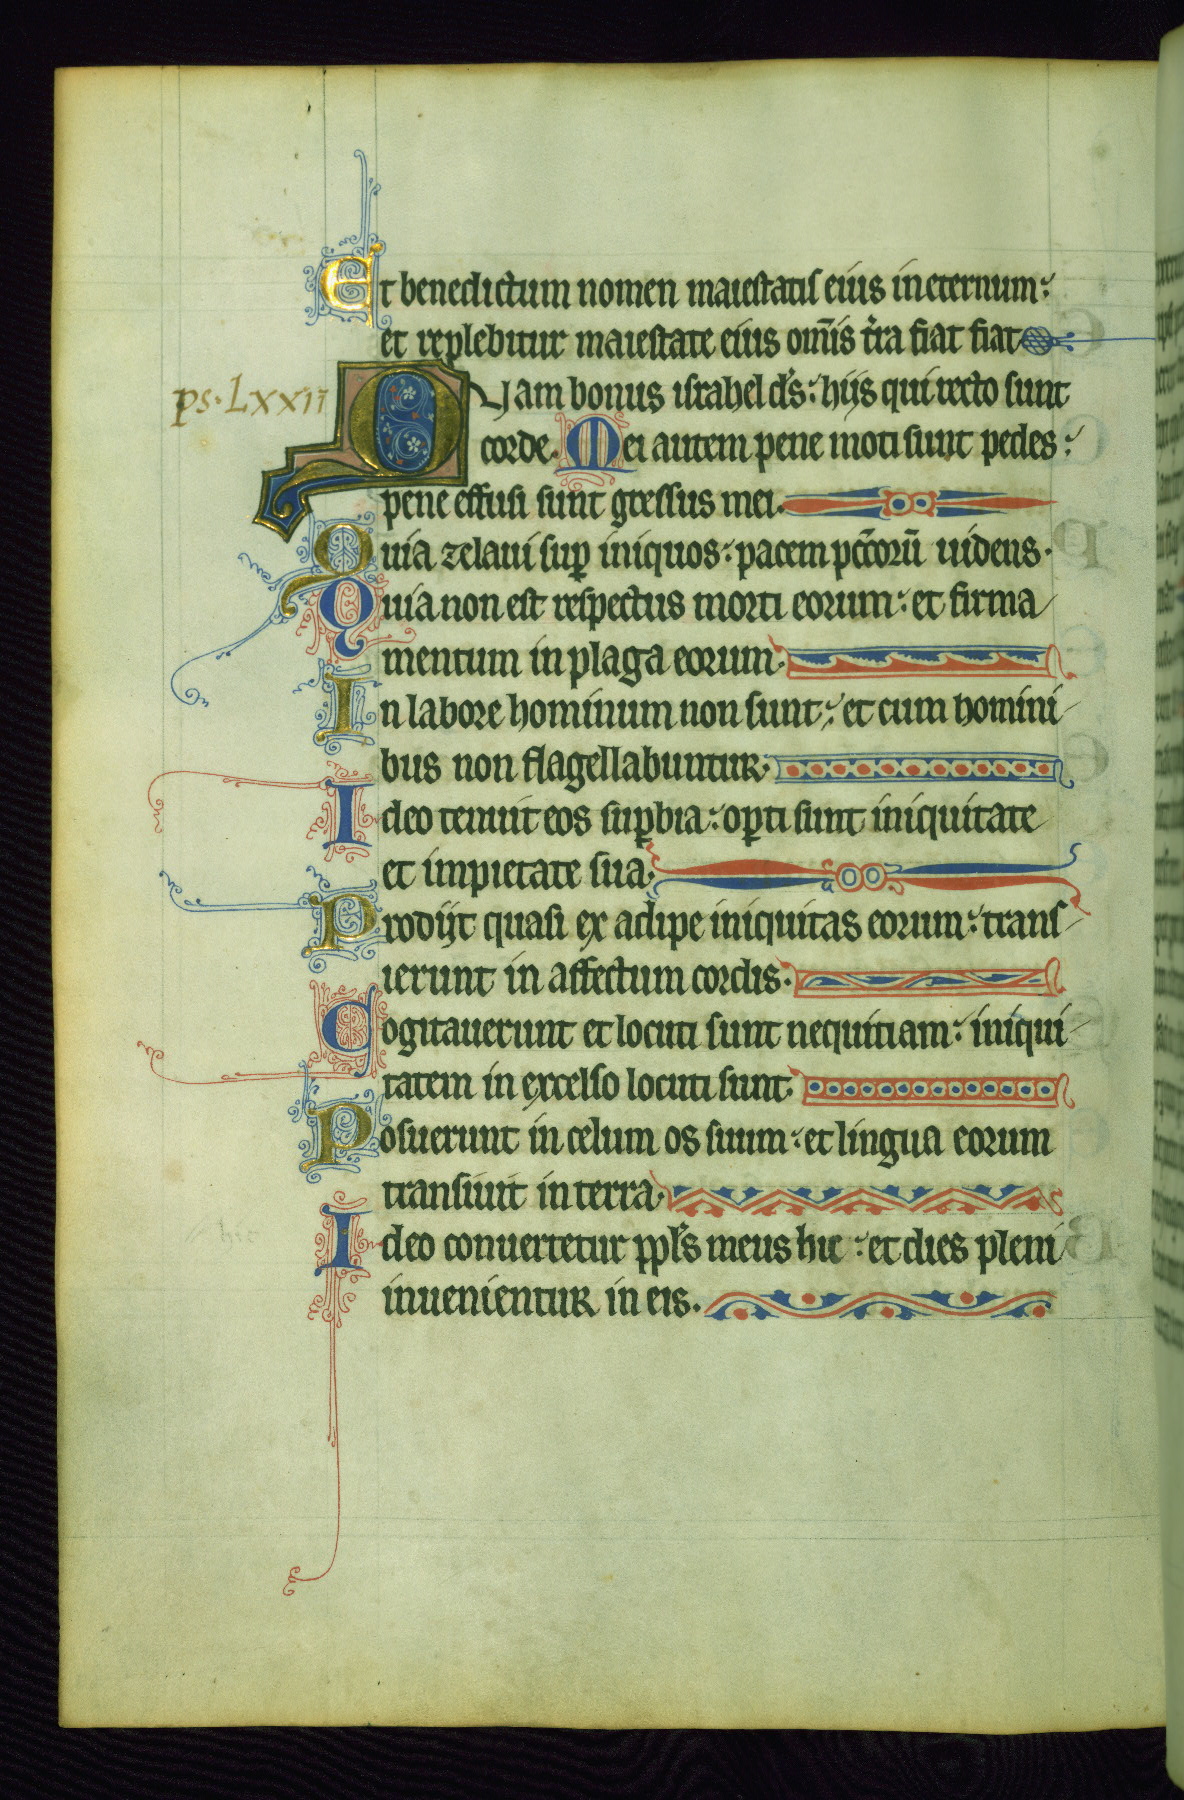 Et benedictum nomen maiestatis eius in eternum:
et replebitur maiestate eius om̄is t̉ra fiat fiat
ps. Lxxii
Quam bonus israhel d̉s: hijs qui recto sunt
corde. Mei autem pene moti sunt pedes:
pene effusi sunt gressus mei.
Quia zelaui suꝑ iniquos: pacem pc̄corū uidens.
Quia non est respectus morti eorum: et firma
mentum in plaga eorum.
In labore hominum non sunt: et cum homini
bus non flagellabuntur.
Ideo tenuit eos suꝑbia: oꝑti sunt iniquitate
et impietate sua.
Prodijt quasi ex adipe iniquitas eorum: trans
ierunt in affectum cordis.
Cogitauerunt et locuti sunt nequitiam: iniqui
tatem in excelso locuti sunt.
Posuerunt in celum os suum: et lingua eorum
transiuit in terra.
Ideo conuertetur ppl̉s meus hic: et dies pleni
inuenientur in eis.